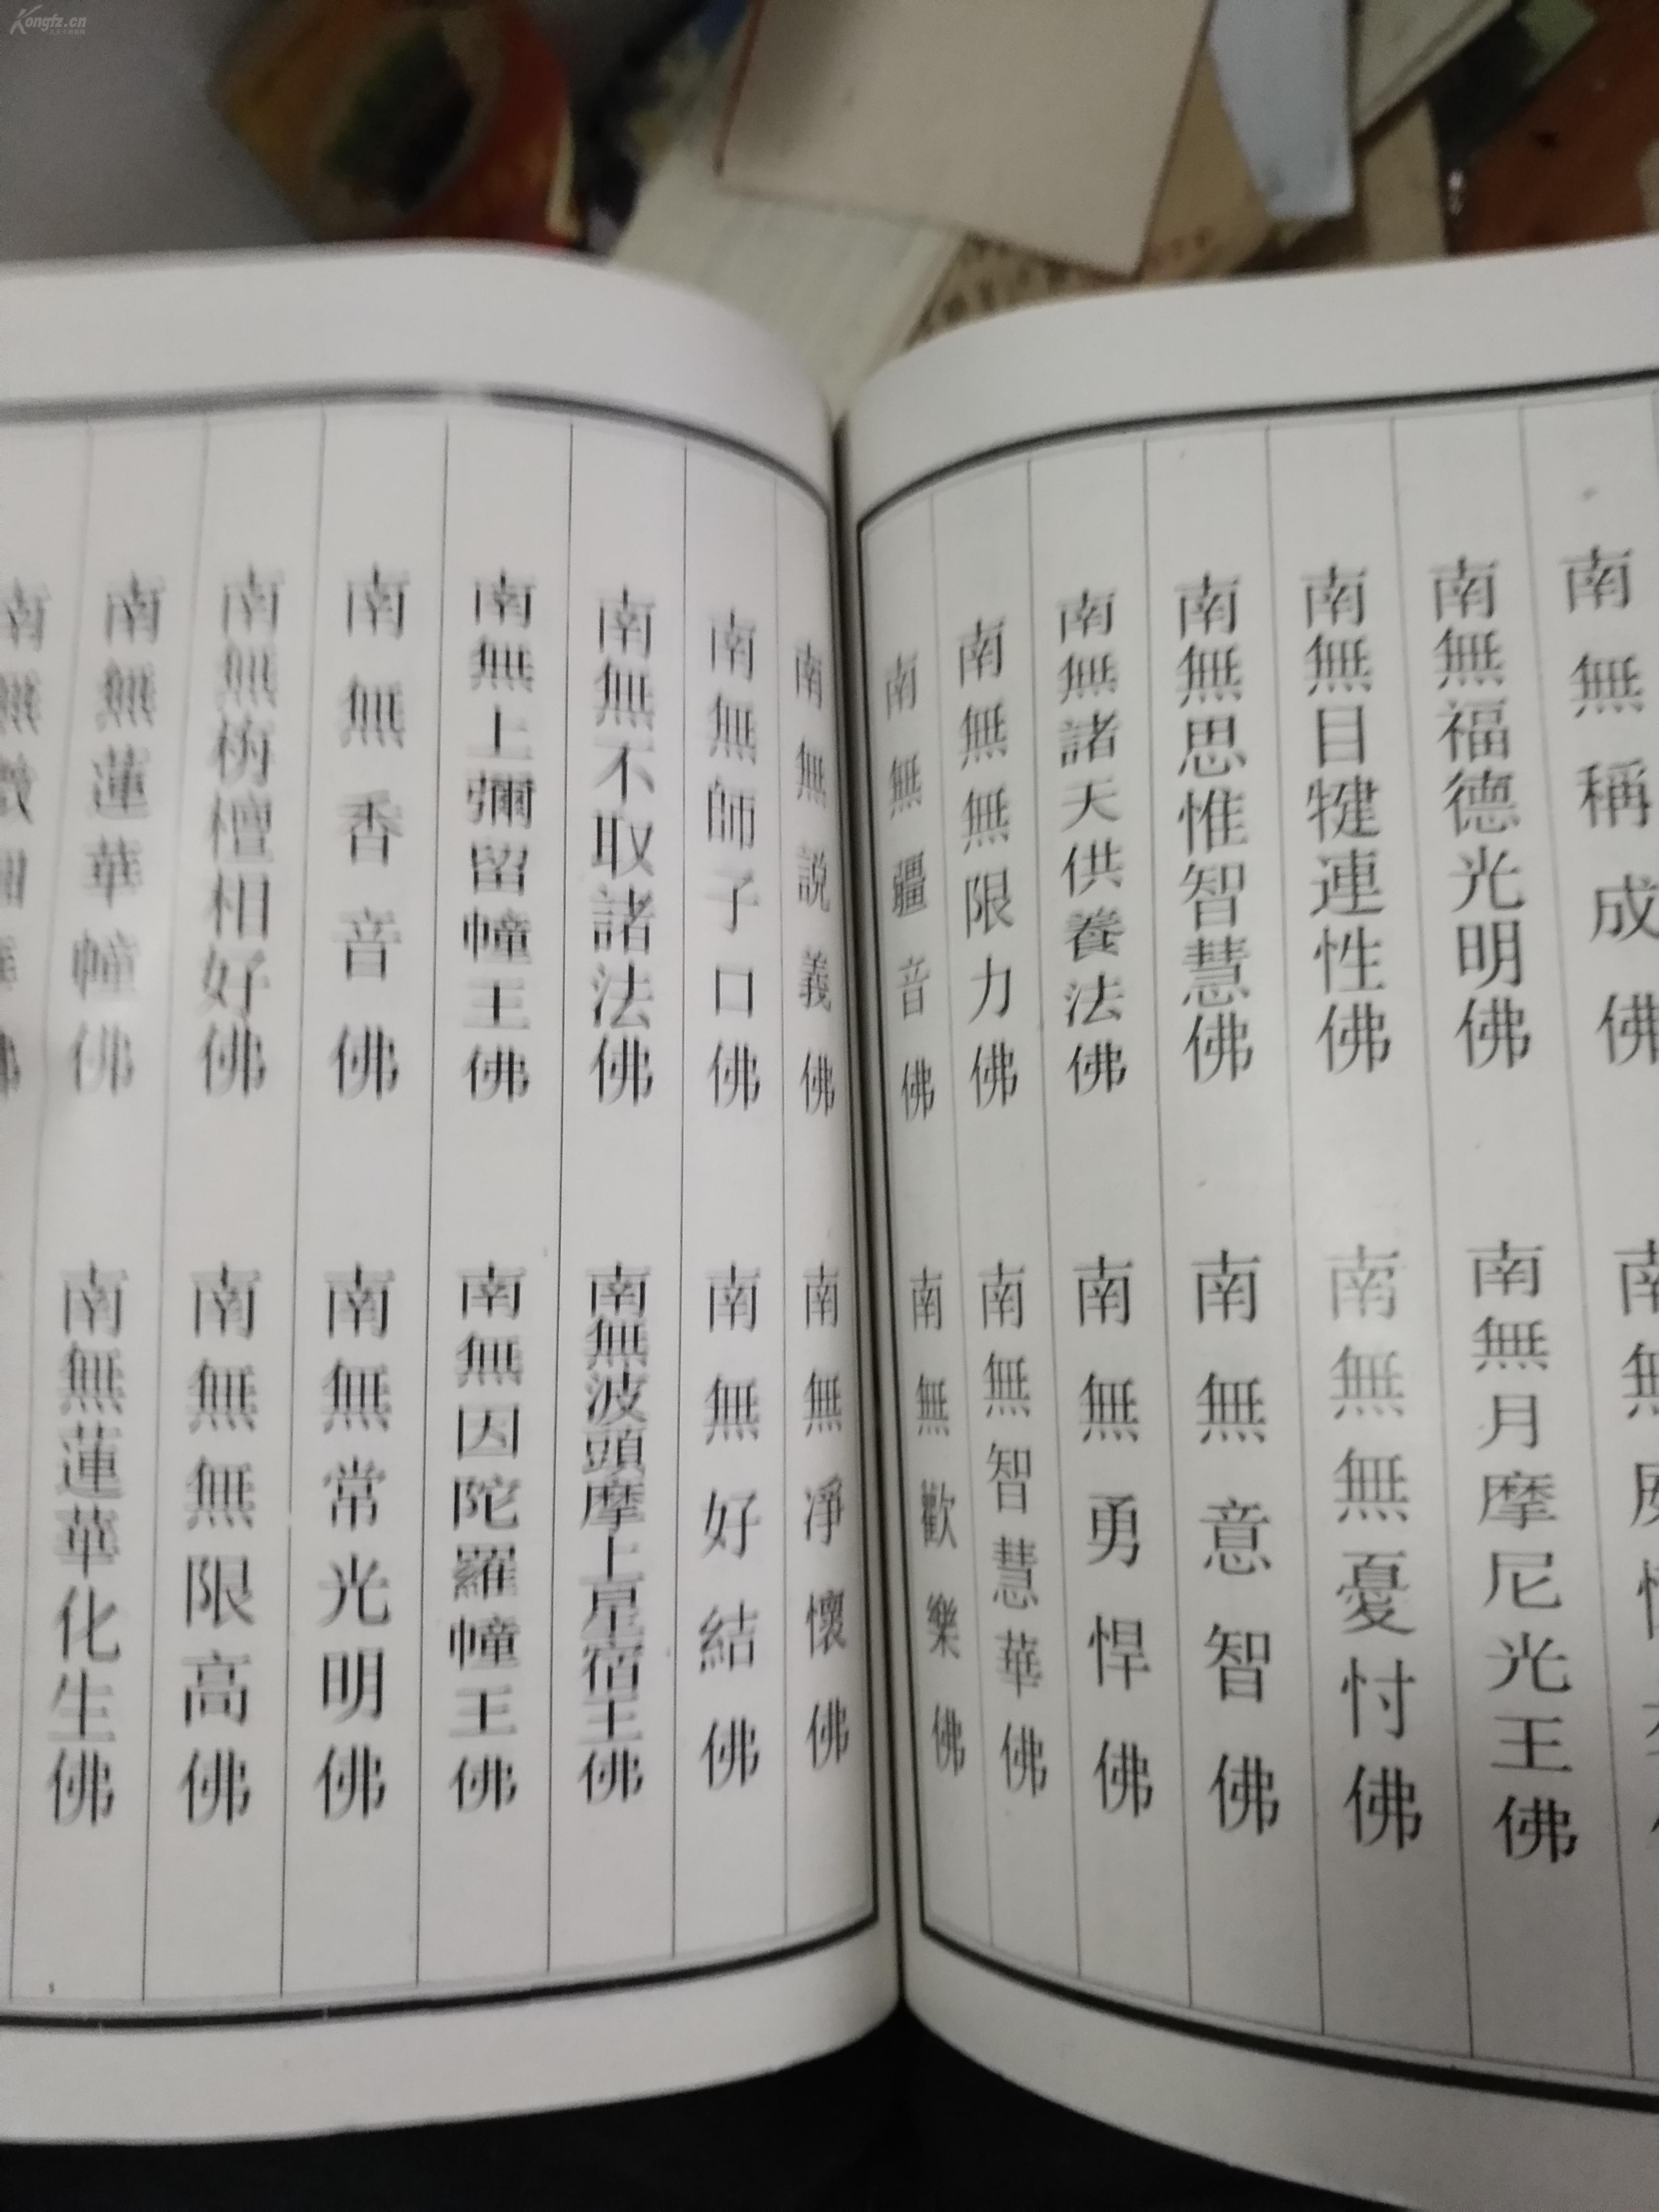 Kongfz.cn
南無稱成佛
南無福德光明佛 南無月摩尼光王佛
南無目犍連性佛 南無無憂忖佛
南無思惟智慧佛 南無意智佛
南無諸天供養法佛 南無勇悍佛
南無無限力佛 南無智慧華佛
南無疆音佛 南無歡樂佛
南無說義佛 南無淨懷佛
南無師子口佛 南無好結佛
南無不取諸法佛 南無波頭摩上星宿王佛
南無上彌留幢王佛 南無因陀羅幢王佛
南無香音佛 南無常光明佛
南無栴檀相好佛 南無無限高佛
南無蓮華幢佛 南無蓮華化生佛